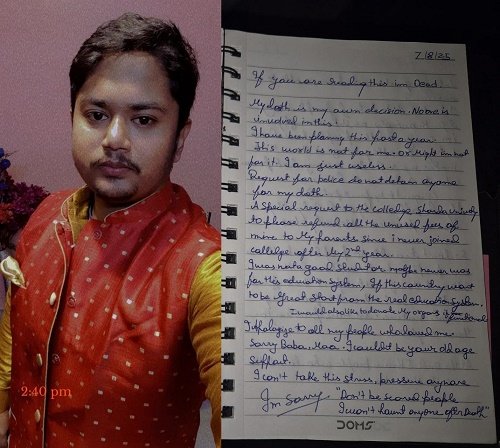 2:40 pm
7/8/25
If you are reading this im Dead.
My death is my own decision. No one is
in this.
I have been planning this past a year.
This world is not for me. Or Might be im not
for it. I am just useless.
Request for police do not detain anyone
for my death.
A special request to the colledge Sharda
to please refund all the unused fees of
mine to My parents since i never joined
college after My 2nd year.
I was not a good student or never was
for this education System, If this country want
to be Great start from the real education System.
I would also like to donate My organs if functional
I Apologize to all my people who loved me.
Sorry Baba, Maa. I couldn't be your old age
I can't take this stress, pressure anymore
I'm Sorry "Don't be scared people
I won't haunt anyone after Death"
DOMS